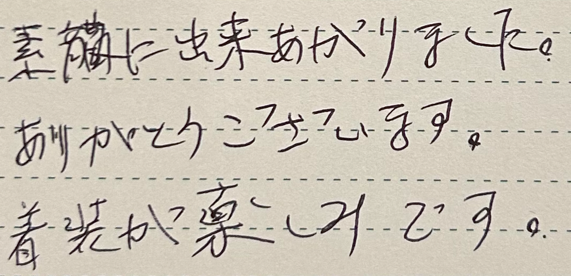 素晴に出来あがりました。
ありがとうございます。
着装が楽しみです。